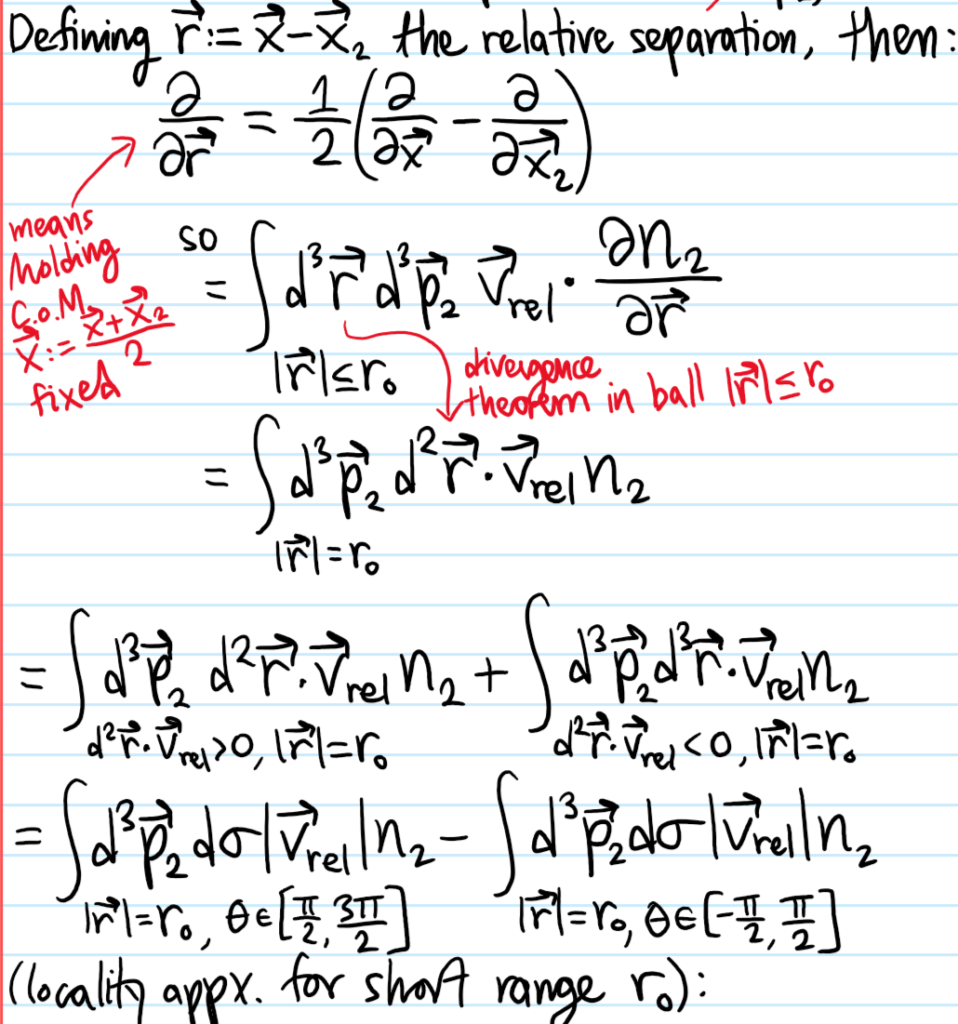 Defining r⃗ := x⃗ - x⃗₂ the relative separation, then:
∂/∂r⃗ = 1/2 (∂/∂x⃗ - ∂/∂x⃗₂)
means holding C.o.M. X⃗ := (x⃗ + x⃗₂)/2 fixed
so = ∫_{|r⃗|≤r₀} d³r⃗ d³p⃗₂ v⃗_rel · ∂n₂/∂r⃗
divergence theorem in ball |r⃗|≤r₀
= ∫_{|r⃗|=r₀} d³p⃗₂ d²r⃗ · v⃗_rel n₂
= ∫_{d²r⃗·v⃗_rel>0, |r⃗|=r₀} d³p⃗₂ d²r⃗ · v⃗_rel n₂ + ∫_{d²r⃗·v⃗_rel<0, |r⃗|=r₀} d³p⃗₂ d³r⃗ · v⃗_rel n₂
= ∫_{|r⃗|=r₀, θ∈[π/2, 3π/2]} d³p⃗₂ dσ |v⃗_rel| n₂ - ∫_{|r⃗|=r₀, θ∈[-π/2, π/2]} d³p⃗₂ dσ |v⃗_rel| n₂
(locality appx. for short range r₀):